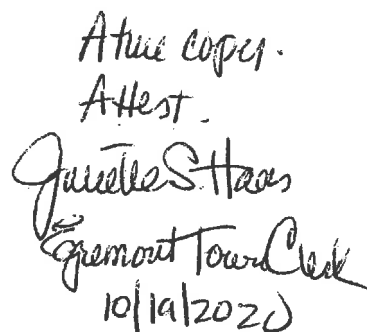 A true copy.
Attest.
Juliette S. Haas
Egremont Town Clerk
10/19/2020